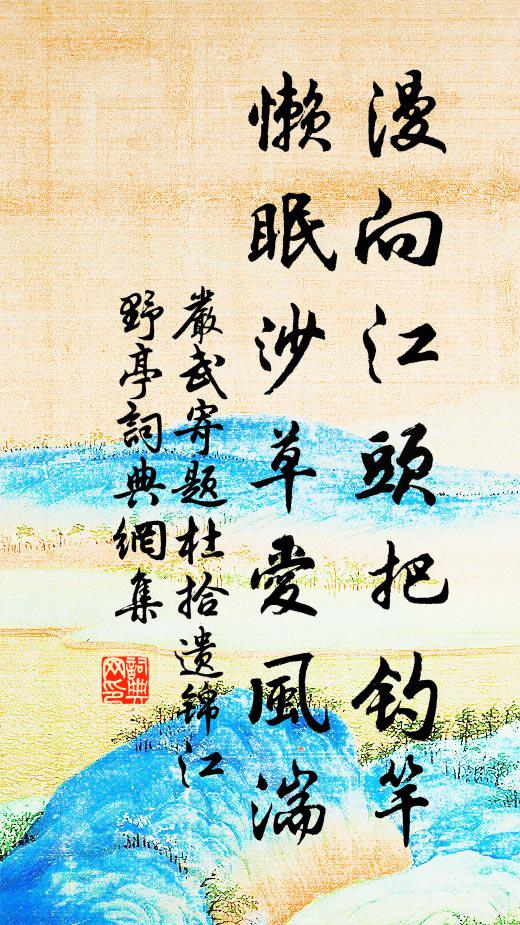 漫向江頭把釣竿
懶眠沙草愛風湍
嚴武寄題杜拾遺錦江
野亭詞典網集
詞典
网印